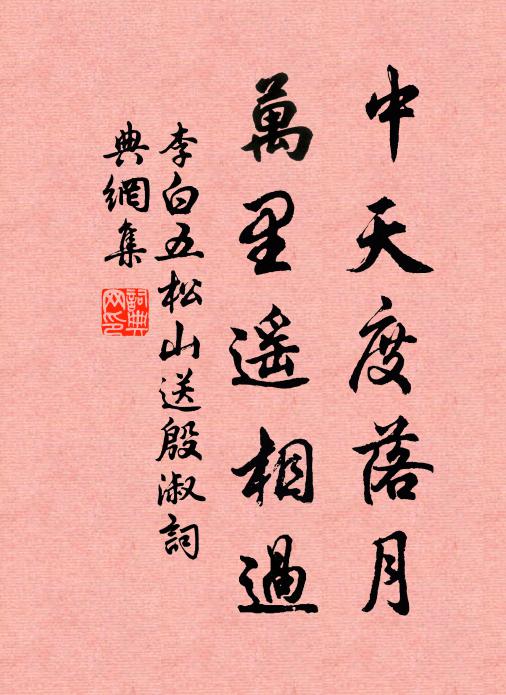 中天度落月
萬里遥相過
李白五松山送殷淑詞
典網集
詞典網印